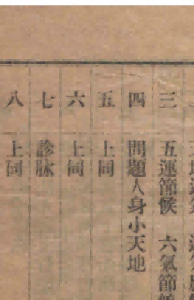 三　五運節候　六氣節候
四　問題人身小天地
五　上同
六　上同
七　診脉
八　上同